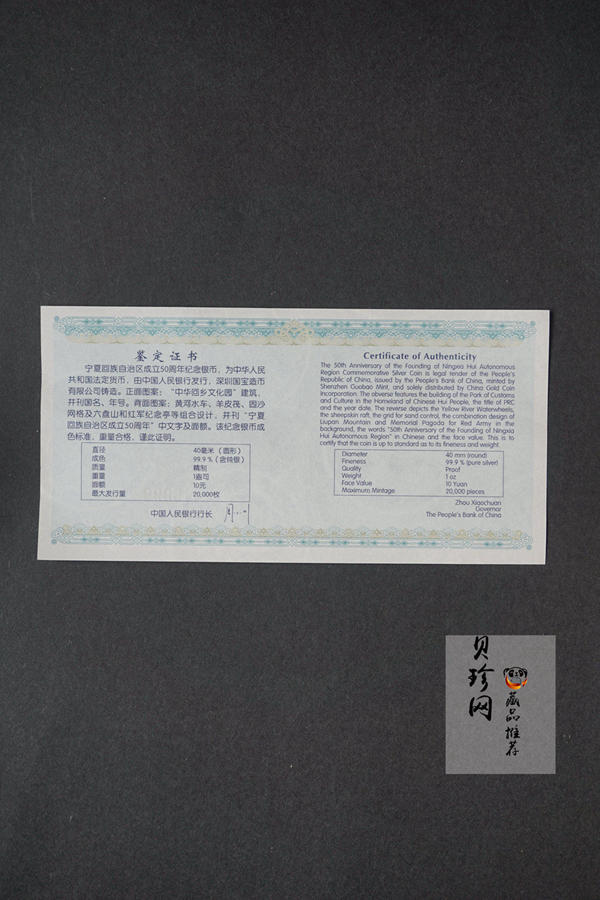 鉴定证书
宁夏回族自治区成立50周年纪念银币，为中华人民
共和国法定货币，由中国人民银行发行，深圳国宝造币
有限公司铸造。正面图案：“中华回乡文化园”建筑，
并刊国名、年号。背面图案：黄河水车、羊皮筏、固沙
网格及六盘山和红军纪念亭等组合设计，并刊“宁夏
回族自治区成立50周年”中文字及面额。该纪念银币成
色标准，重量合格，谨此证明。
直径 40毫米（圆形）
成色 99.9％（含纯银）
质量 精制
重量 1盎司
面额 10元
最大发行量 20,000枚
中国人民银行行长
Certificate of Authenticity
The 50th Anniversary of the Founding of Ningxia Hui Autonomous
Region Commemorative Silver Coin is legal tender of the People's
Republic of China, issued by the People's Bank of China, minted by
Shenzhen Guobao Mint, and solely distributed by China Gold Coin
Incorporation. The obverse features the building of the Park of Customs
and Culture in the Homeland of Chinese Hui People, the title of PRC
and the year date. The reverse depicts the Yellow River Waterwheels,
the sheepskin raft, the grid for sand control, the combination design of
Liupan Mountain and Memorial Pagoda for Red Army in the
background, the words "50th Anniversary of the Founding of Ningxia
Hui Autonomous Region" in Chinese and the face value. This is to
certify that the coin is up to standard as to its fineness and weight.
Diameter 40 mm (round)
Fineness 99.9 % (pure silver)
Quality Proof
Weight 1 oz
Face Value 10 Yuan
Maximum Mintage 20,000 pieces
Zhou Xiaochuan
Governor
The People's Bank of China
贝珍网
藏品推荐